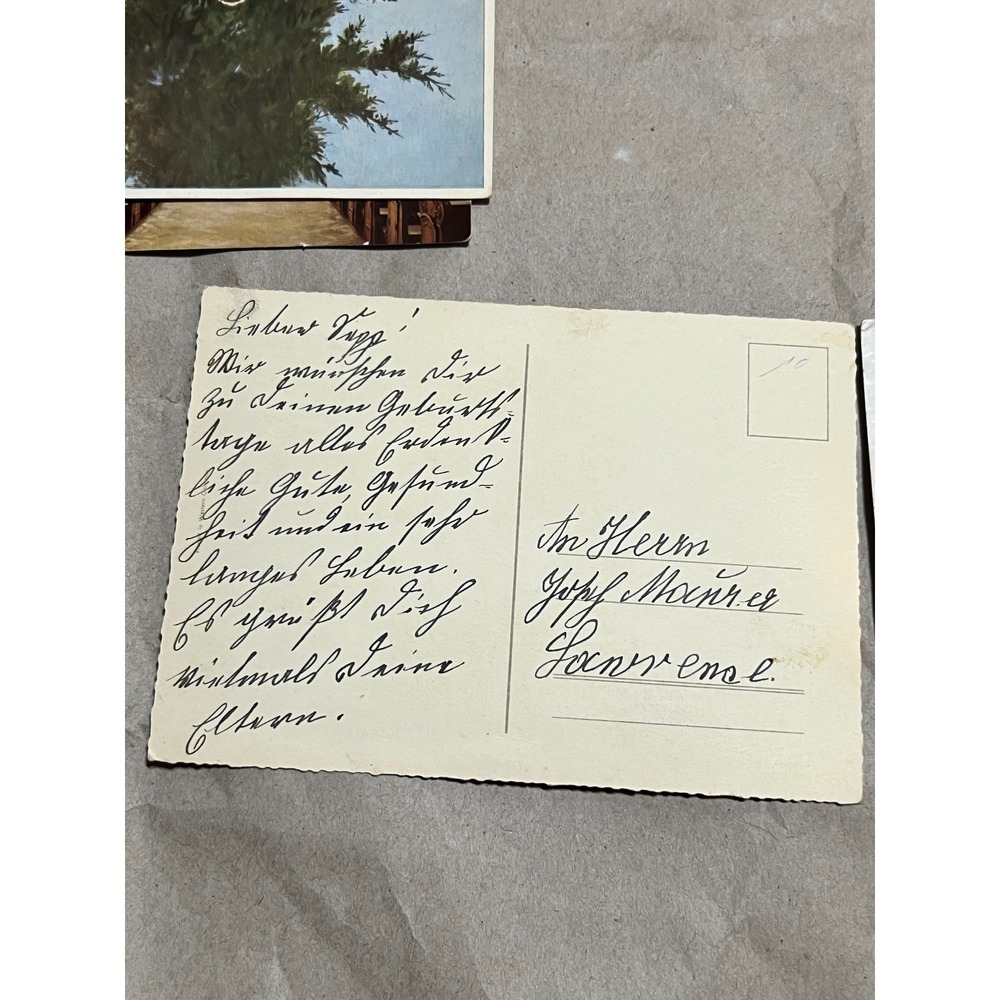 Lieber Sepp!
Wir wünschen Dir
zu Deinen Geburts-
tage alles Erdenk-
liche Gute, Gesund-
heit und ein sehr
langes Leben.
Es grüßt Dich
vielmals Deine
Eltern.
10
An Herrn
Josef Maurer